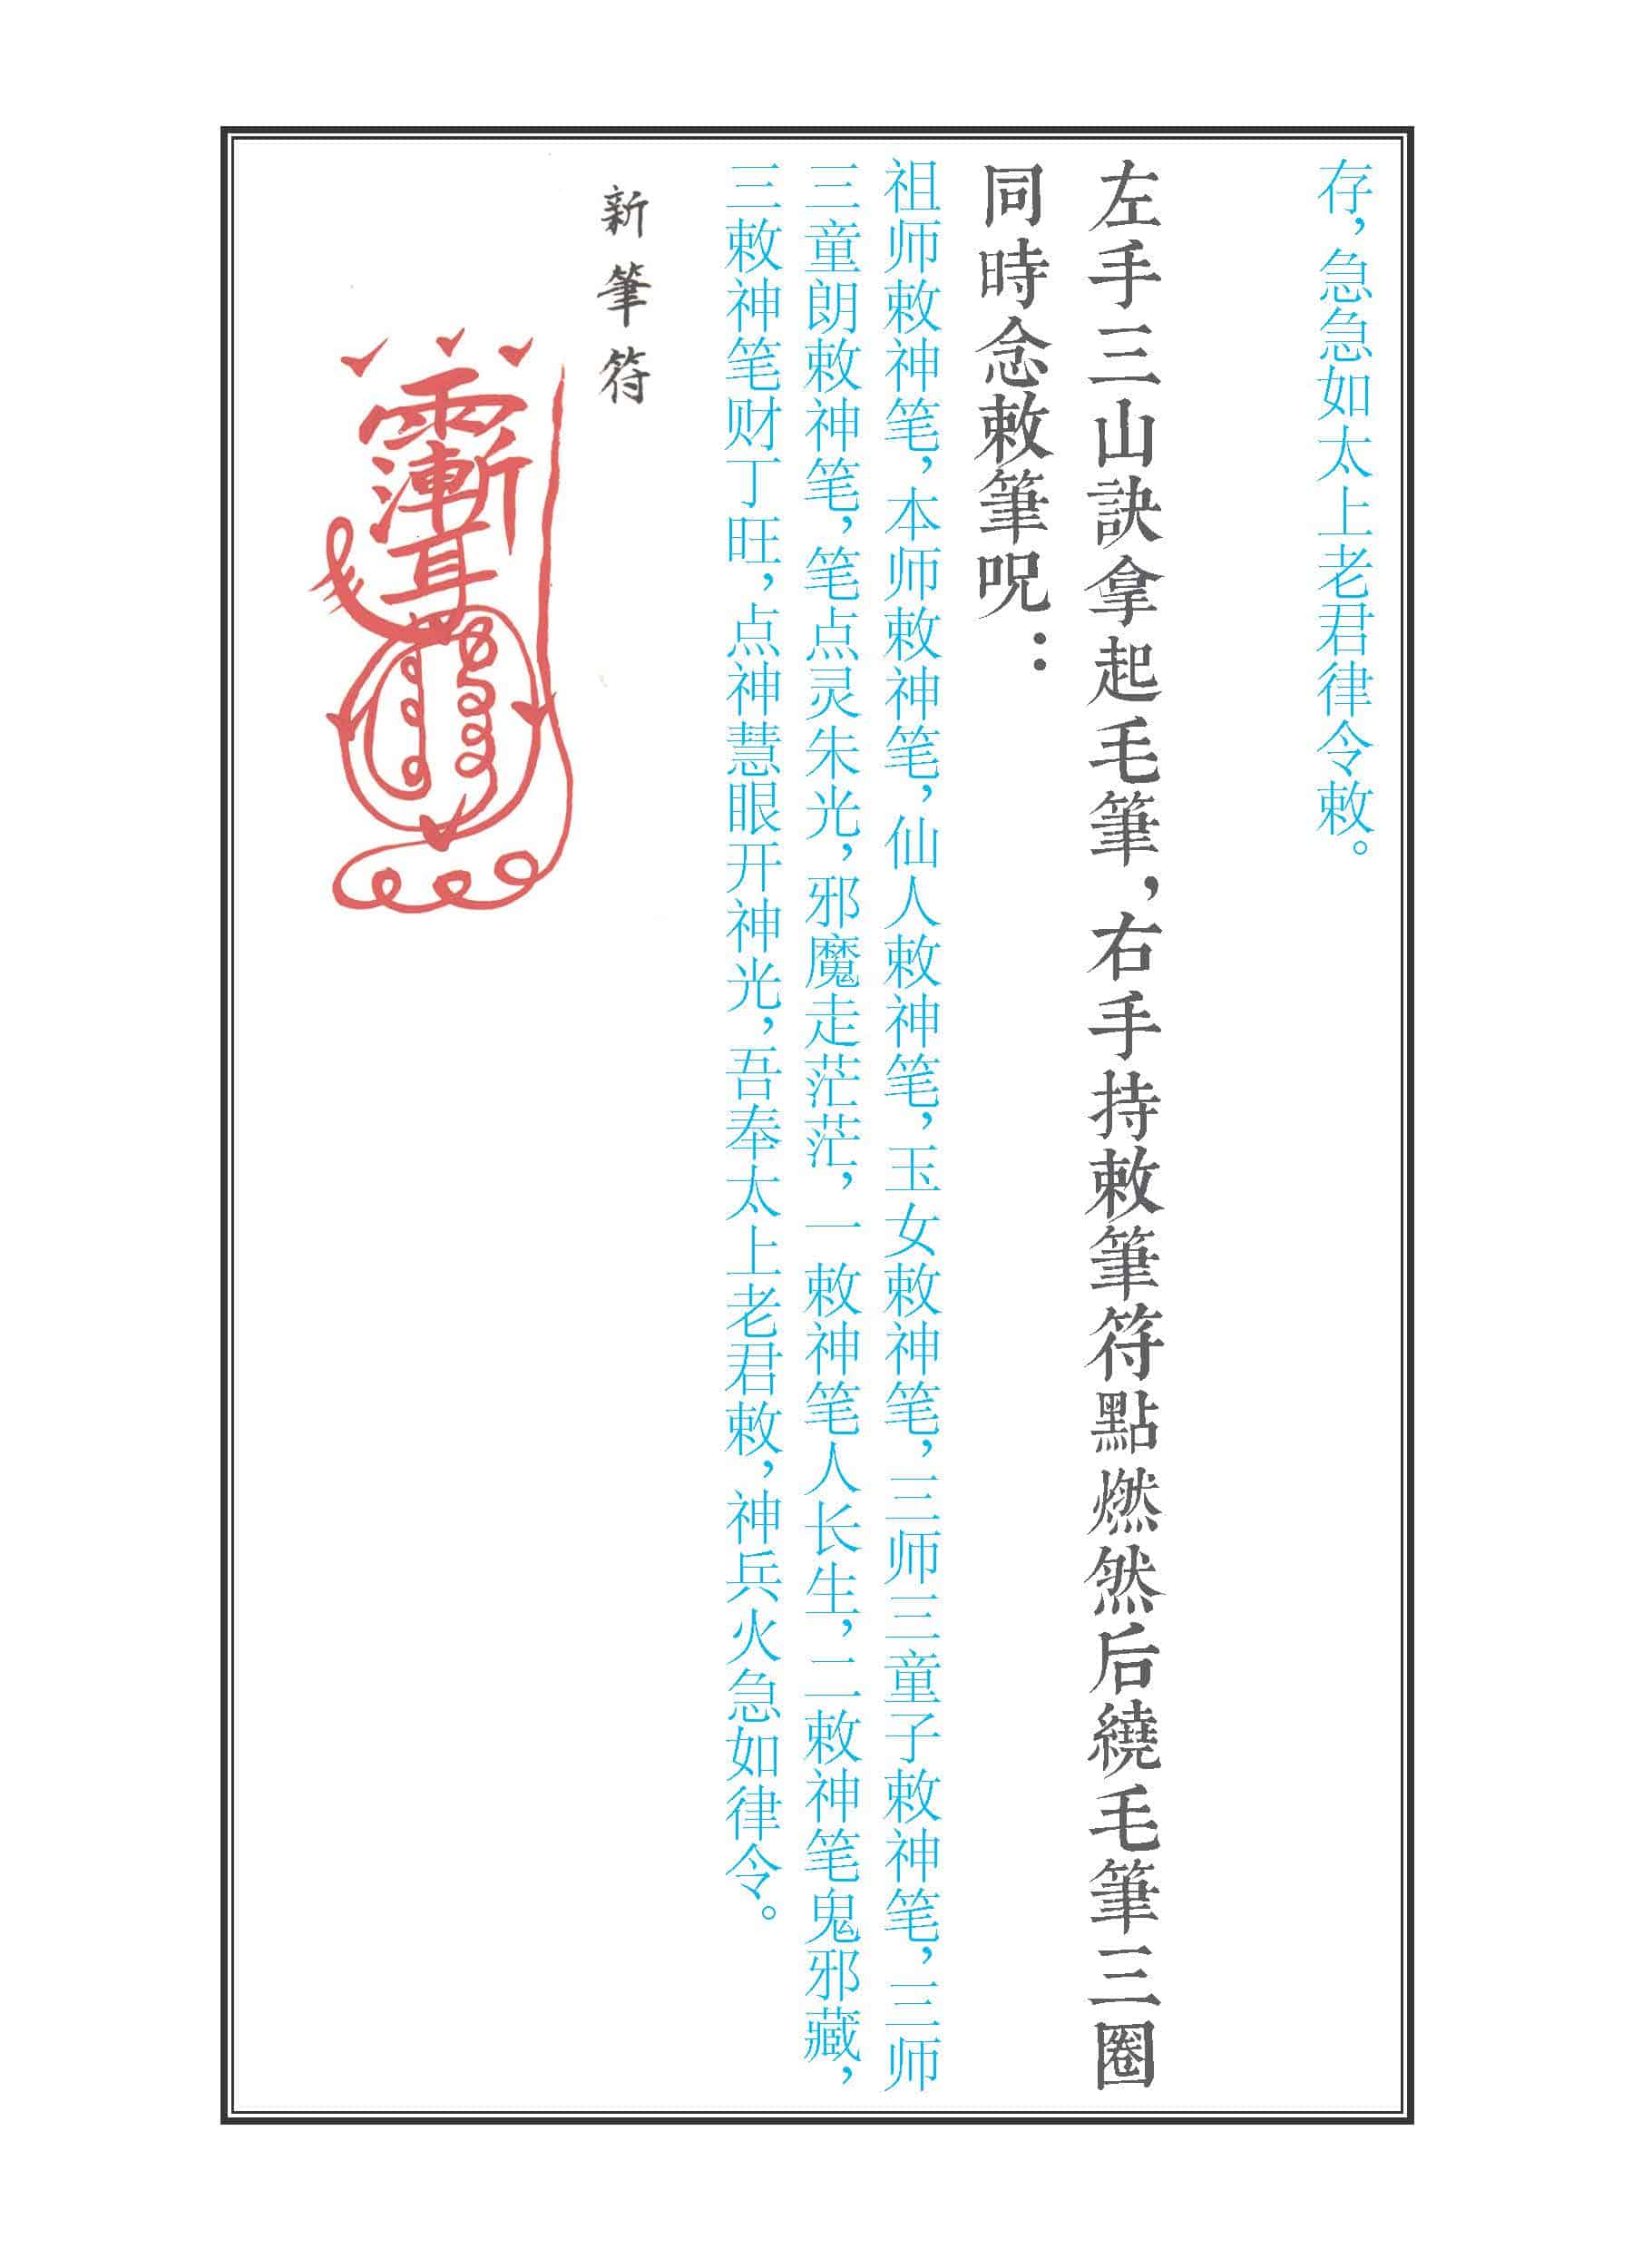 存，急急如太上老君律令敕。
左手三山訣拿起毛筆，右手持敕筆符點燃然后繞毛筆三圈
同時念敕筆呪：
祖师敕神笔，本师敕神笔，仙人敕神笔，玉女敕神笔，三师三童子敕神笔，三师
三童朗敕神笔，笔点灵朱光，邪魔走茫茫，一敕神笔人长生，二敕神笔鬼邪藏，
三敕神笔财丁旺，点神慧眼开神光，吾奉太上老君敕，神兵火急如律令。
新筆符